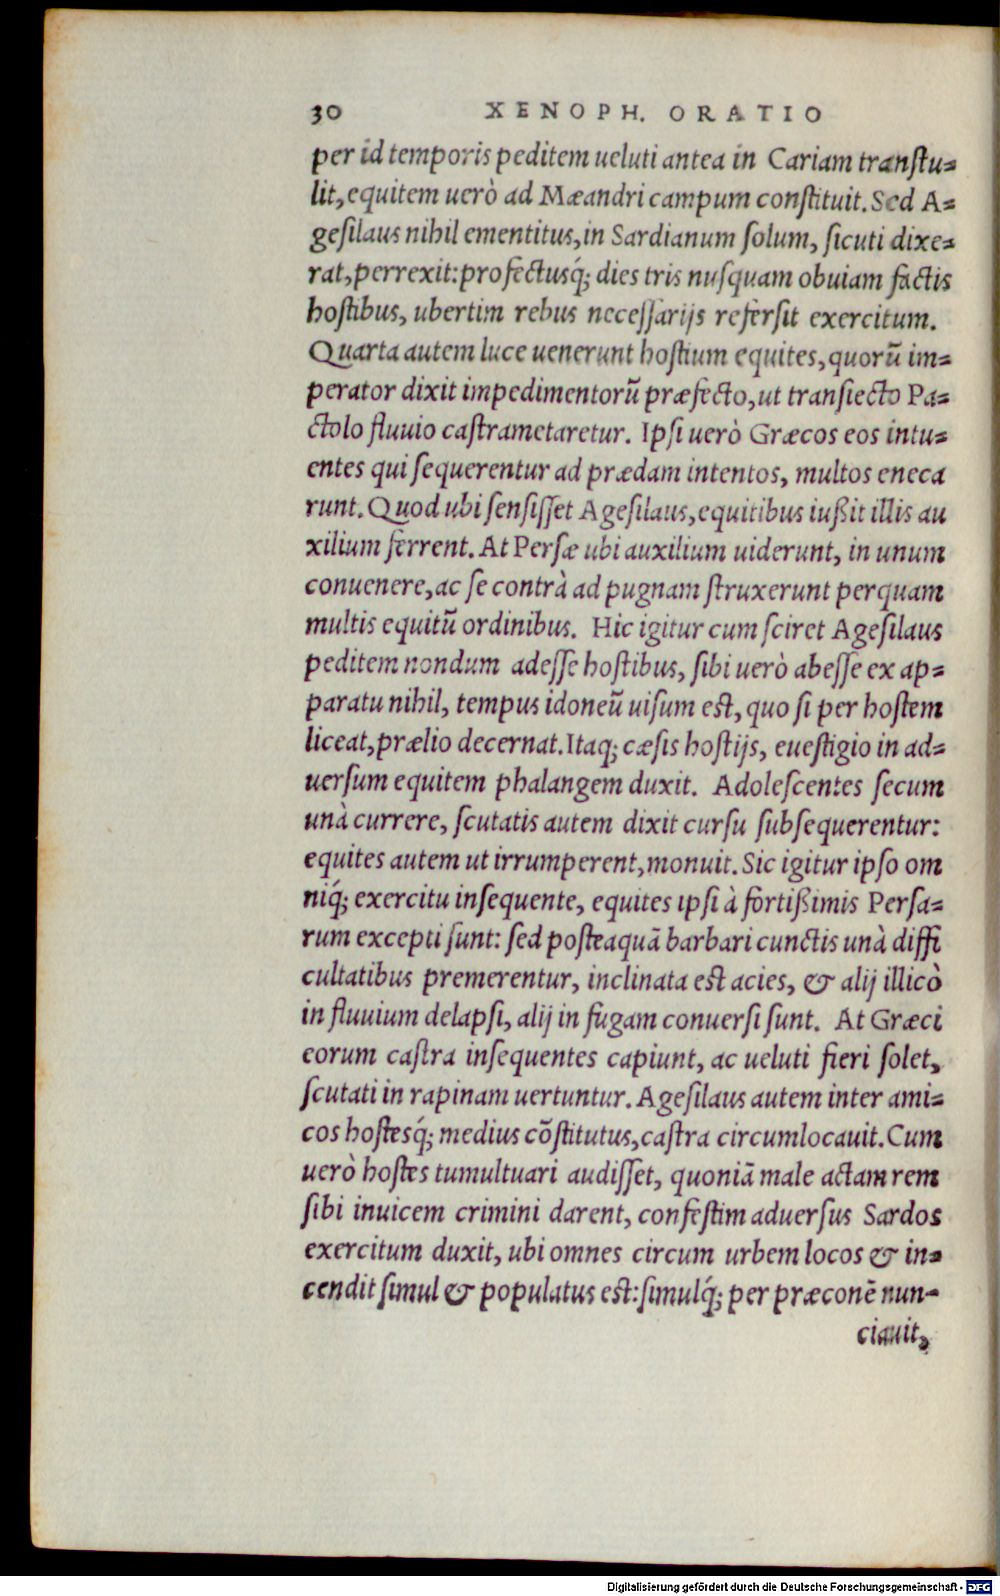 30 XENOPH. ORATIO
per id temporis peditem ueluti antea in Cariam transtu=
lit, equitem uerò ad Mæandri campum constituit. Sed A=
gesilaus nihil ementitus, in Sardianum solum, sicuti dixe=
rat, perrexit: profectusq́; dies tris nusquam obuiam factis
hostibus, ubertim rebus necessarijs refersit exercitum.
Quarta autem luce uenerunt hostium equites, quorũ im=
perator dixit impedimentorũ præfecto, ut transiecto Pa=
ctolo fluuio castrametaretur. Ipsi uerò Græcos eos intu=
entes qui sequerentur ad prædam intentos, multos eneca
runt. Quod ubi sensisset Agesilaus, equitibus iußit illis au
xilium ferrent. At Persæ ubi auxilium uiderunt, in unum
conuenere, ac se contrà ad pugnam struxerunt perquam
multis equitũ ordinibus. Hic igitur cum sciret Agesilaus
peditem nondum adesse hostibus, sibi uerò abesse ex ap=
paratu nihil, tempus idoneũ uisum est, quo si per hostem
liceat, prælio decernat. Itaq; cæsis hostijs, euestigio in ad=
uersum equitem phalangem duxit. Adolescentes secum
unà currere, scutatis autem dixit cursu subsequerentur:
equites autem ut irrumperent, monuit. Sic igitur ipso om
niq́; exercitu insequente, equites ipsi à fortißimis Persa=
rum excepti sunt: sed posteaquã barbari cunctis unà diffi
cultatibus premerentur, inclinata est acies, & alij illicò
in fluuium delapsi, alij in fugam conuersi sunt. At Græci
eorum castra insequentes capiunt, ac ueluti fieri solet,
scutati in rapinam uertuntur. Agesilaus autem inter ami=
cos hostesq́; medius cõstitutus, castra circumlocauit. Cum
uerò hostes tumultuari audisset, quoniã male actam rem
sibi inuicem crimini darent, confestim aduersus Sardos
exercitum duxit, ubi omnes circum urbem locos & in=
cendit simul & populatus est: simulq́; per præconẽ nun-
ciauit,
Digitalisierung gefördert durch die Deutsche Forschungsgemeinschaft - DFG